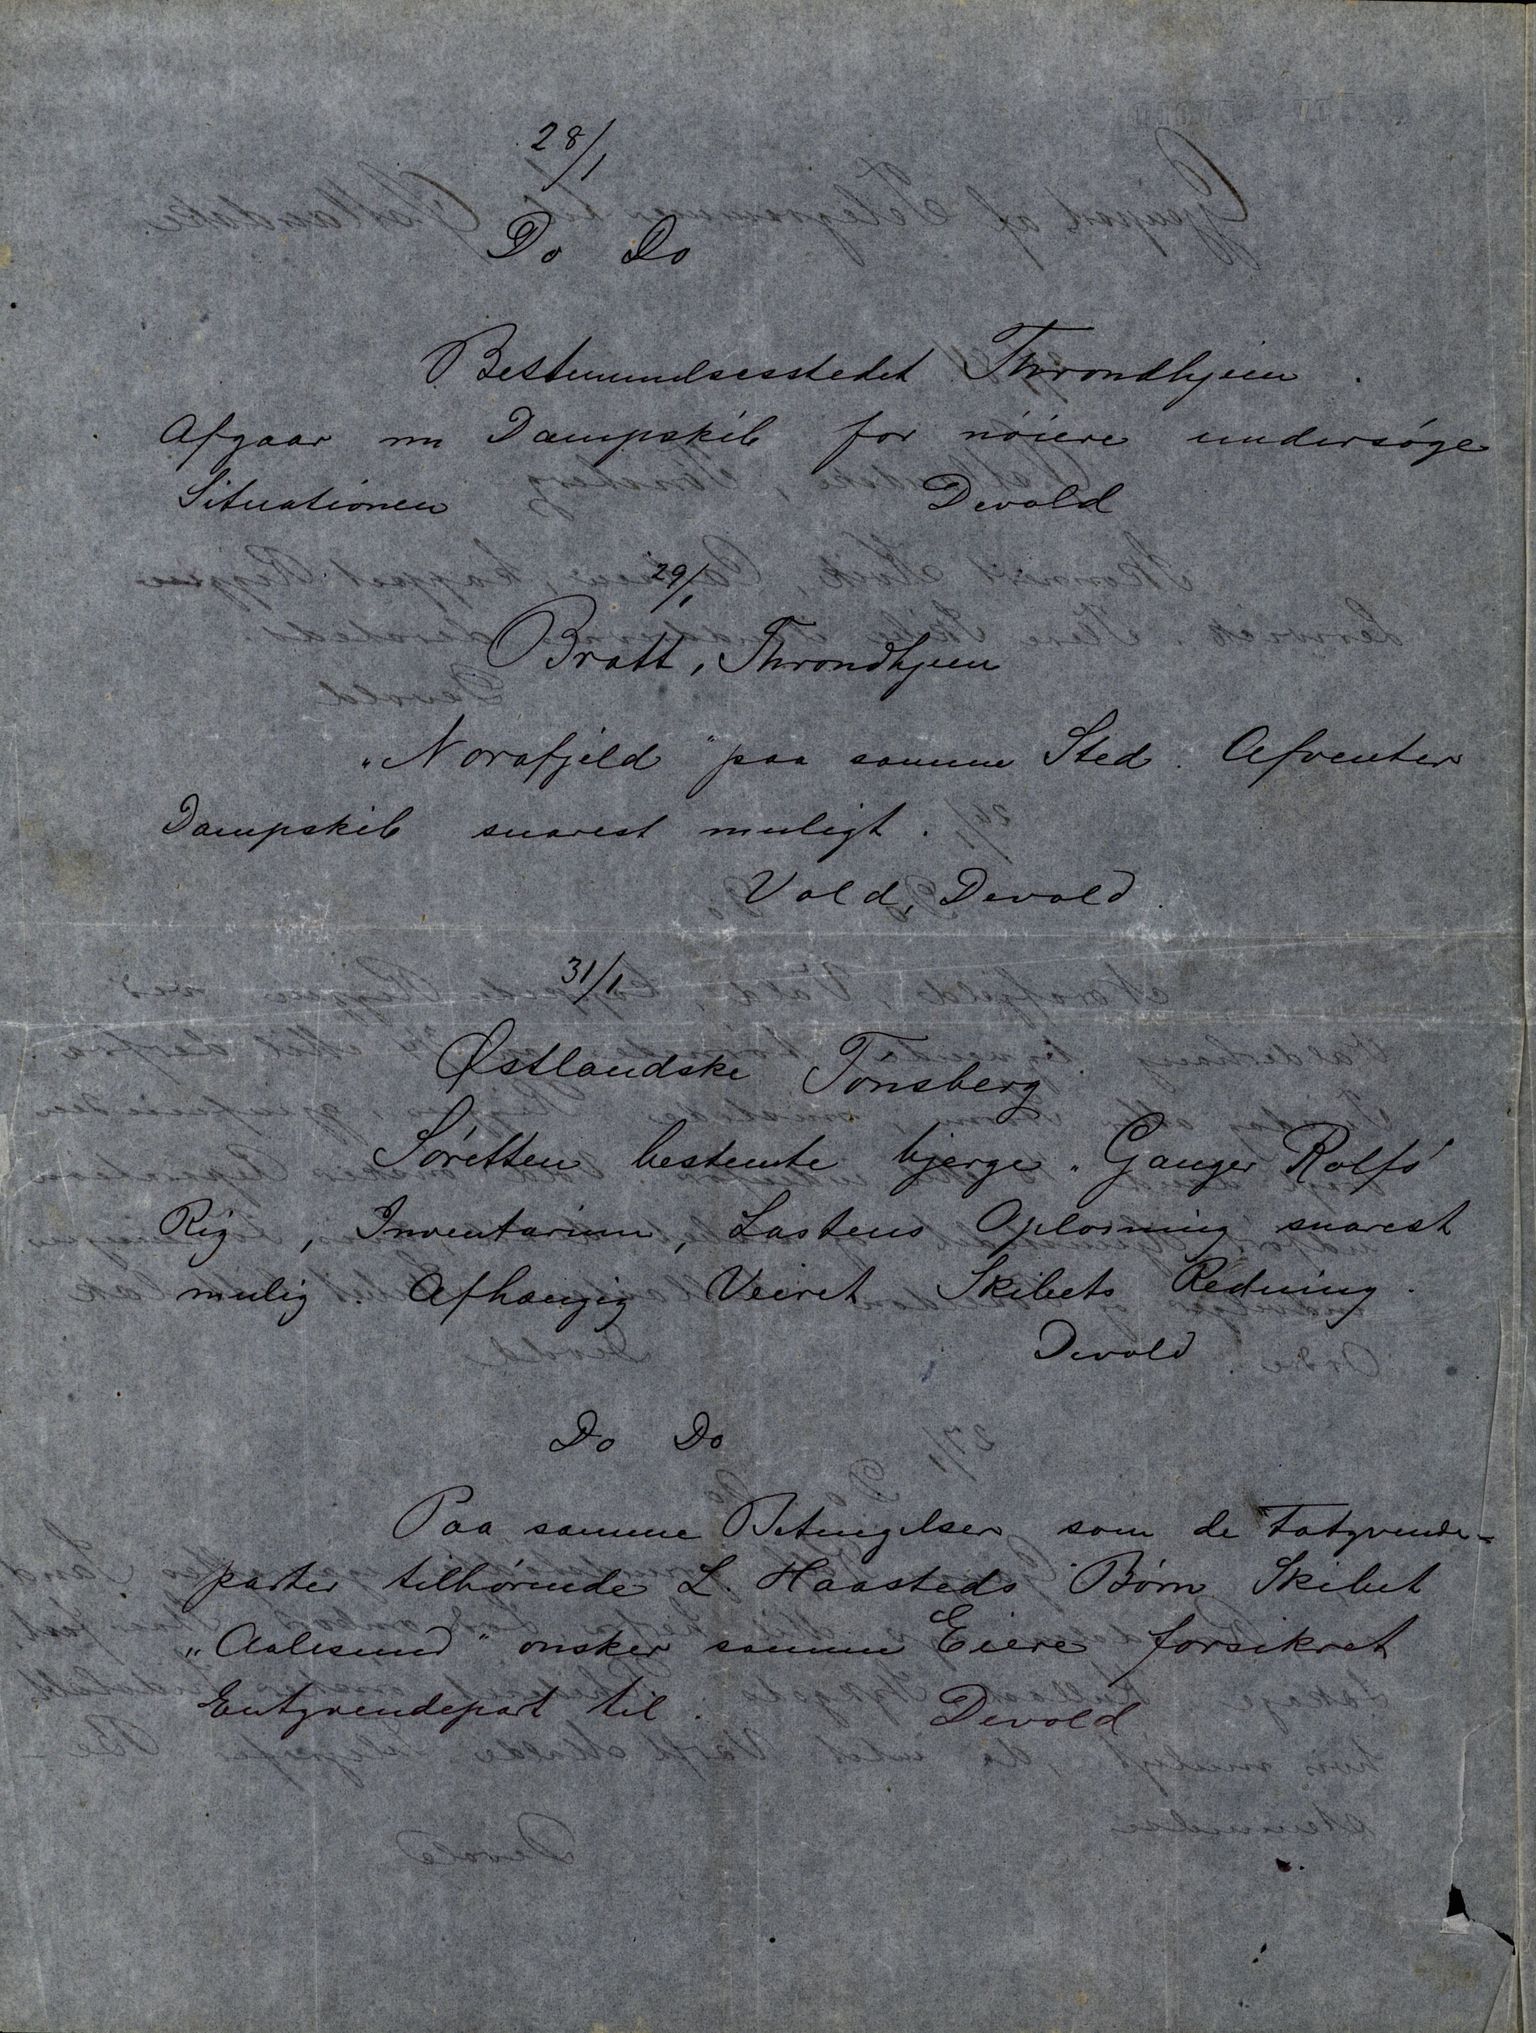 28/1
Do Do
Bestemmelsesstedet Throndhjem.
Afgaar nu Dampskib for nöiere undersöge
Situationen Devold
29/1
Bratt, Throndhjem
„Norafjeld" paa samme Sted. Afventer
Dampskib snarest muligt.
Vald, Devold.
31/1
Østlandske Tönsberg
Söretten bestemte bjerge „Ganger Rolfs"
Rig, Inventarium, Lastens Oplosning snarest
mulig. Afhængig Veiret Skibets Redning.
Devold
Do Do
Paa samme Betingelser som de
parter tilhörende L. Haasteds Børn Skibet
„Aalesund" onsker samme Eiere forsikret
Entyvendepart til. Devold